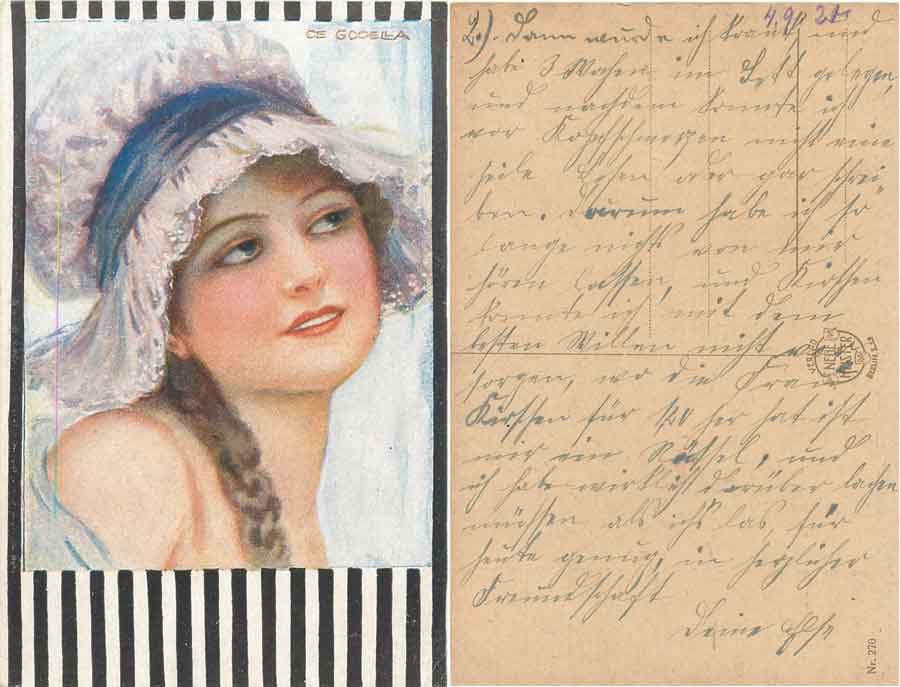 DE GODELLA
4.9 21
2.) Dann wurde ich krank und
habe 3 Wochen im Bett gelegen,
und nachdem konnte ich
vor Kopfschmerzen nicht eine
Zeile lesen oder gar schrei
ben. Darum habe ich so
lange nichts von mir
hören lassen, und Kirschen
konnte ich mit dem
besten Willen nicht
sorgen, wo die Frau
Kirschen für her hat ist
mir ein Rätsel, und
ich habe wirklich darüber lachen
müssen als ichs las, für
heute genug, in herzlicher
Freundschaft
Deine Else
Nr. 270